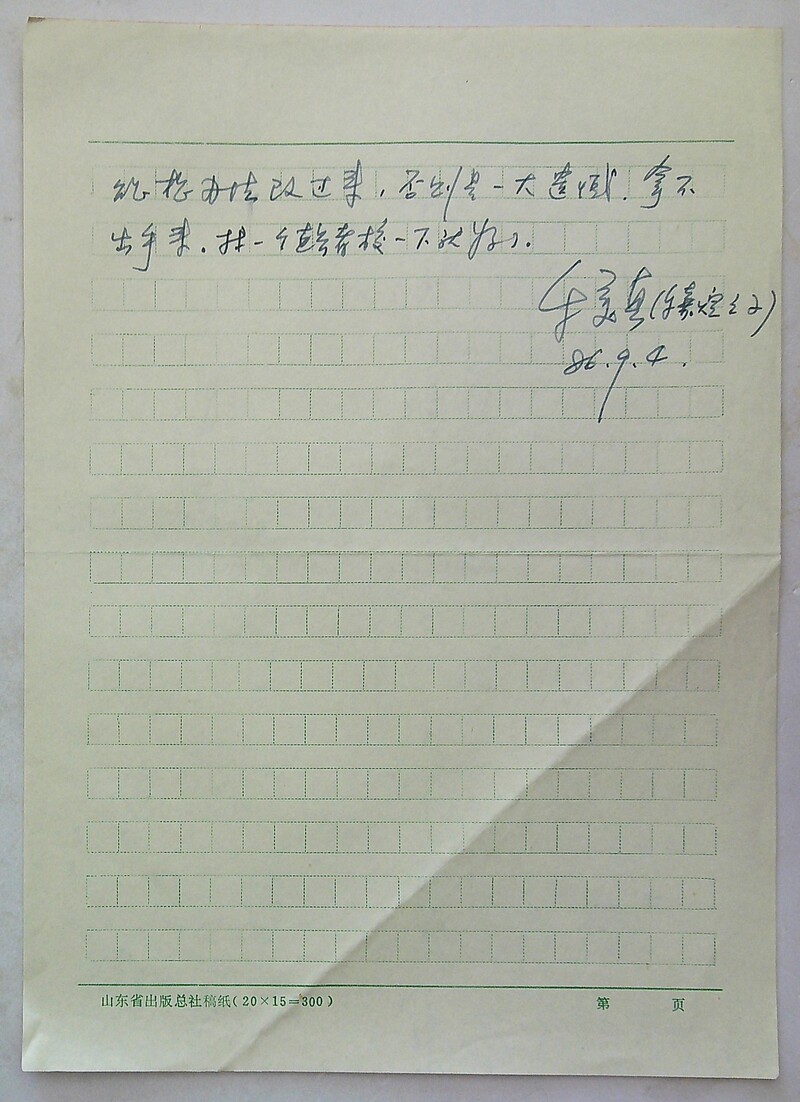 能想办法改过来，否则是一大遗憾．拿不
出手来．找一个
校一下就好了．
86.9.4.
山东省出版总社稿纸(20×15=300)
第 页